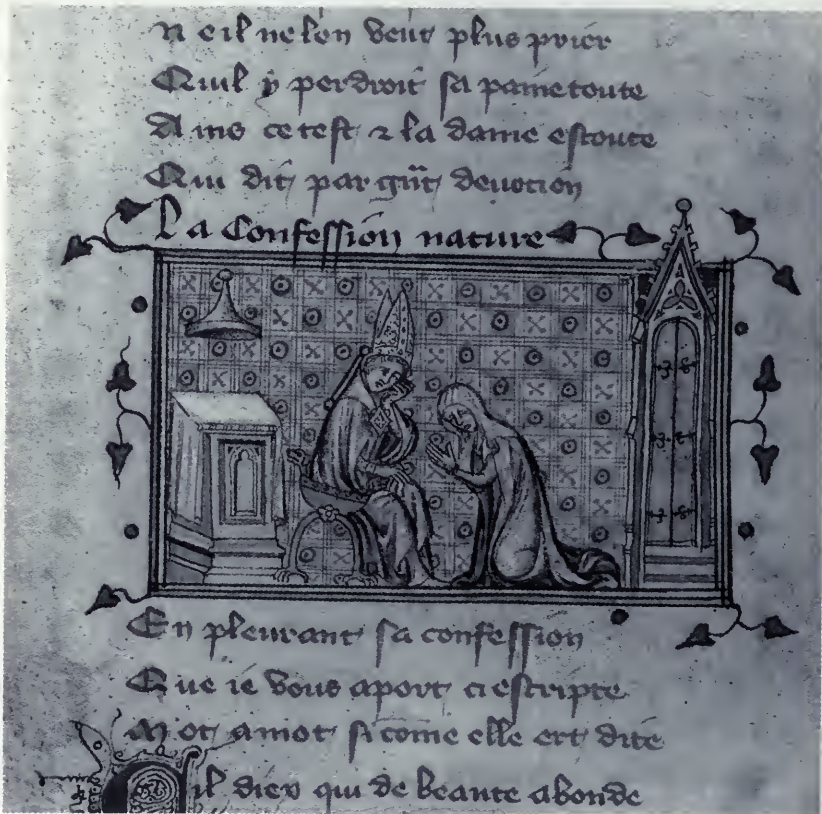 N eil ne lon veut plus prier
Quil y perdroit sa paine toute
A ins ce test ⁊ la dame escoute
Qui dit par gñt deuocion
La Confession nature
En pleurant sa confession
Que ie vous aport ci escripte
Mot amot si come elle ert dite
Cil diex qui de beaute abonde